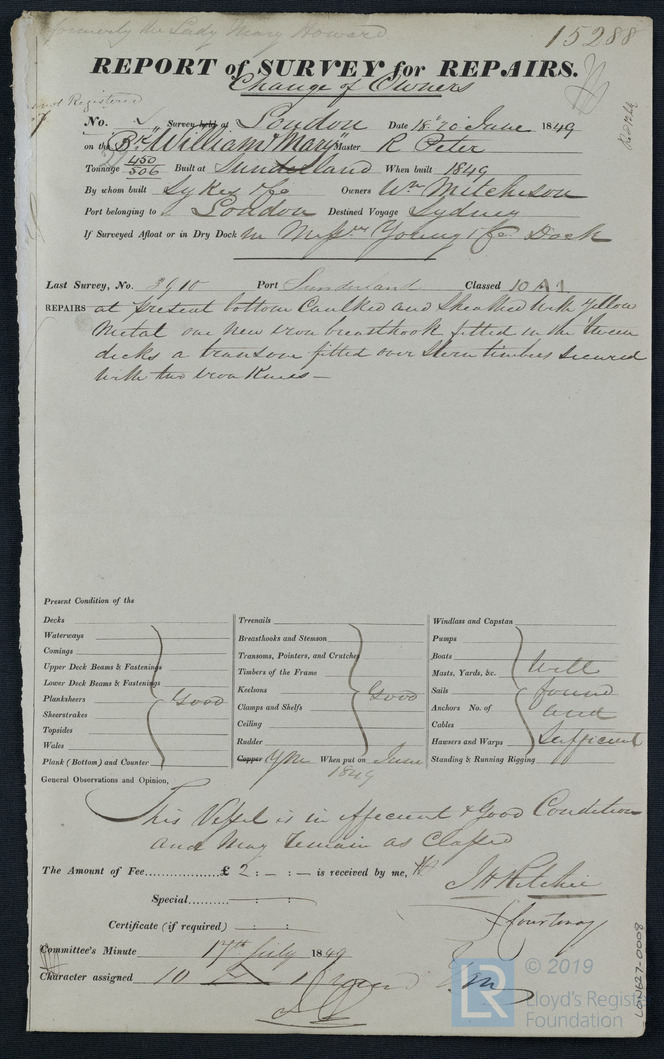 formerly the Lady Mary Howard
15288
REPORT of SURVEY for REPAIRS.
Change of Owners
and Registered
No. Survey held at London Date 18. 20 June 1849
on the Br. "William & Mary" Master R Peter
Tonnage 450 506 Built at Sunderland When built 1849
By whom built Sykes & Co Owners Wm Mitcheson
Port belonging to London Destined Voyage Sydney
If Surveyed Afloat or in Dry Dock in Messrs Young & Co Dock
Last Survey, No. 3910 Port Sunderland Classed 10 A 1
REPAIRS at present bottom Caulked and Sheathed with Yellow
Metal one New iron breasthook fitted in the tween
decks a transom fitted over Stern timbers Secured
With two iron Knees —
Present Condition of the
Decks
Waterways
Comings
Upper Deck Beams & Fastenings
Lower Deck Beams & Fastenings
Planksheers Good
Sheerstrakes
Topsides
Wales
Plank (Bottom) and Counter
Treenails
Breasthooks and Stemson
Transoms, Pointers, and Crutches
Timbers of the Frame
Keelsons Good
Clamps and Shelfs
Ceiling
Rudder
Copper YM When put on June
1849
Windlass and Capstan
Pumps
Boats
Masts, Yards, &c. Well
Sails found
Anchors No. of and
Cables
Hawsers and Warps Sufficient
Standing & Running Rigging
General Observations and Opinion,
This Vessel is in effecient & Good Condition
and May remain as Classed
The Amount of Fee £ 2 : — : — is received by me,
J H Ritchie
Special : :
Courtenay
Certificate (if required) : :
Committee's Minute 17th July 1849
Character assigned 10 A 1
© 2019
LR
Lloyd's Register
Foundation
LON627-0008